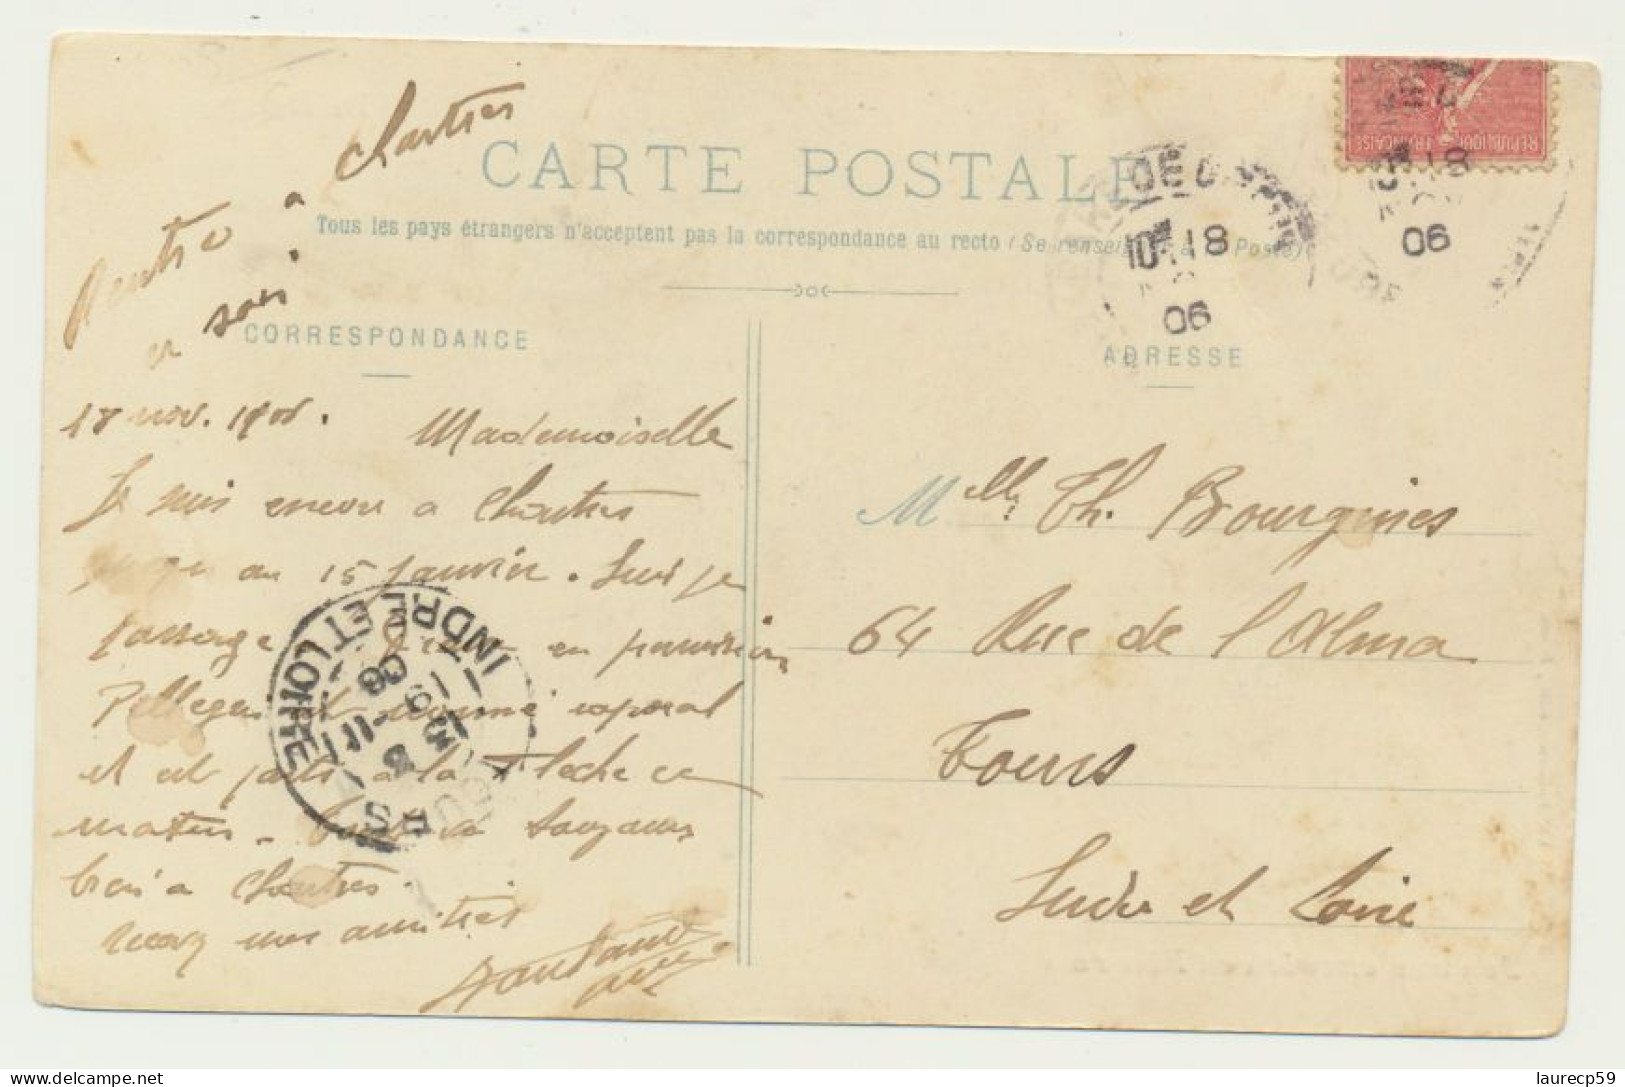 Rentré à Chartres
ce soir.
CARTE POSTALE
Tous les pays étrangers n'acceptent pas la correspondance au recto (Se renseigner à la Poste)
CORRESPONDANCE
ADRESSE
REPUBLIQUE FRANÇAISE
10 18
06
18
06
18 nov. 190
Mademoiselle
Je suis encore a Chartres
jusqu'au 15 janvier. Suis
passage en permission
Pellegen est nommé caporal
et est parti a la Flèche ce
matin. toujours
bien a Chartres.
mes amitiés
INDRE ET LOIRE
TOURS
19 -11
06
Mlle Th. Bourgines
64 Rue de l'Alma
Tours
Indre et Loire
laurecp59